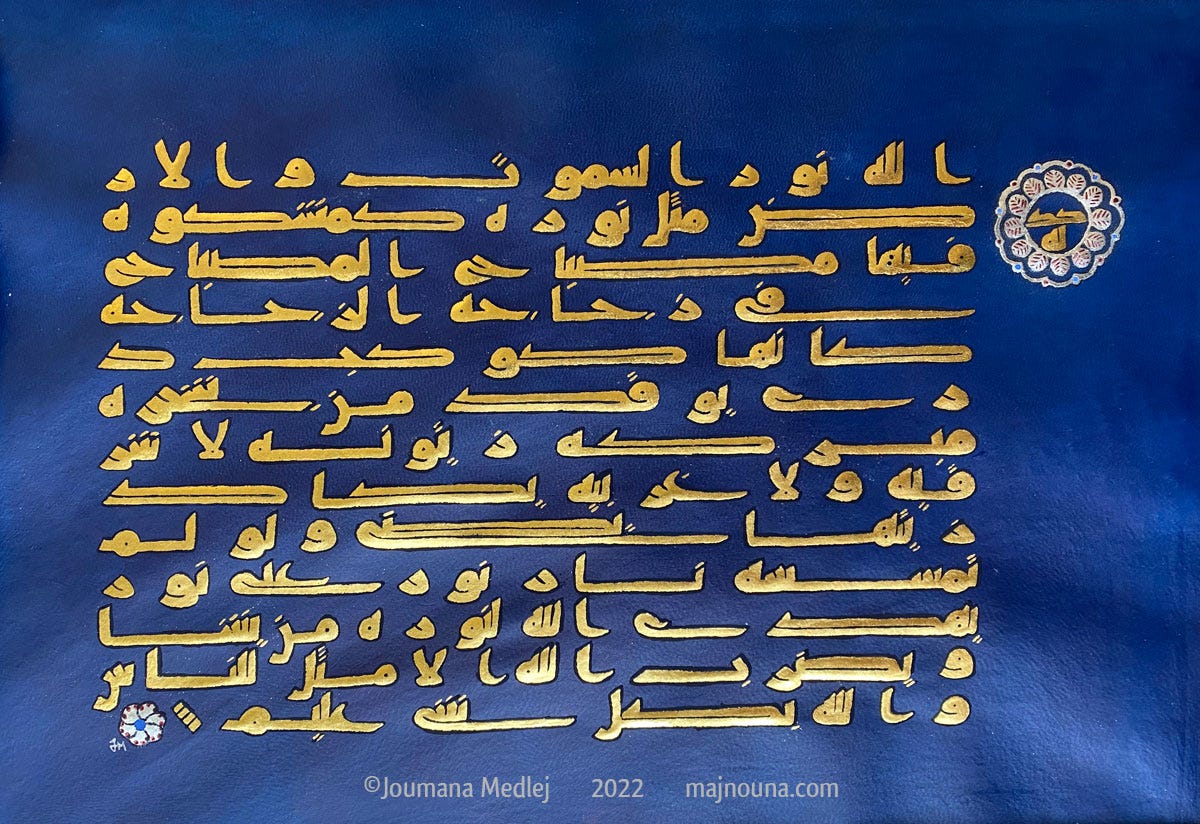 الله نور السموت والار
ض مثل نوره كمشكوه
فيها مصباح المصباح
في زجاجه الزجاجه
كانها كوكب د
ري يوقد من شجره
مبركه زيتونه لا شر
قيه ولا غربيه يكاد
زيتها يضي ولو لم
تمسسه نار نور على نور
يهدي الله لنوره من يشا
ويضرب الله الامثل للناس
والله بكل شي عليم
كد
له
JM
©Joumana Medlej 2022 majnouna.com